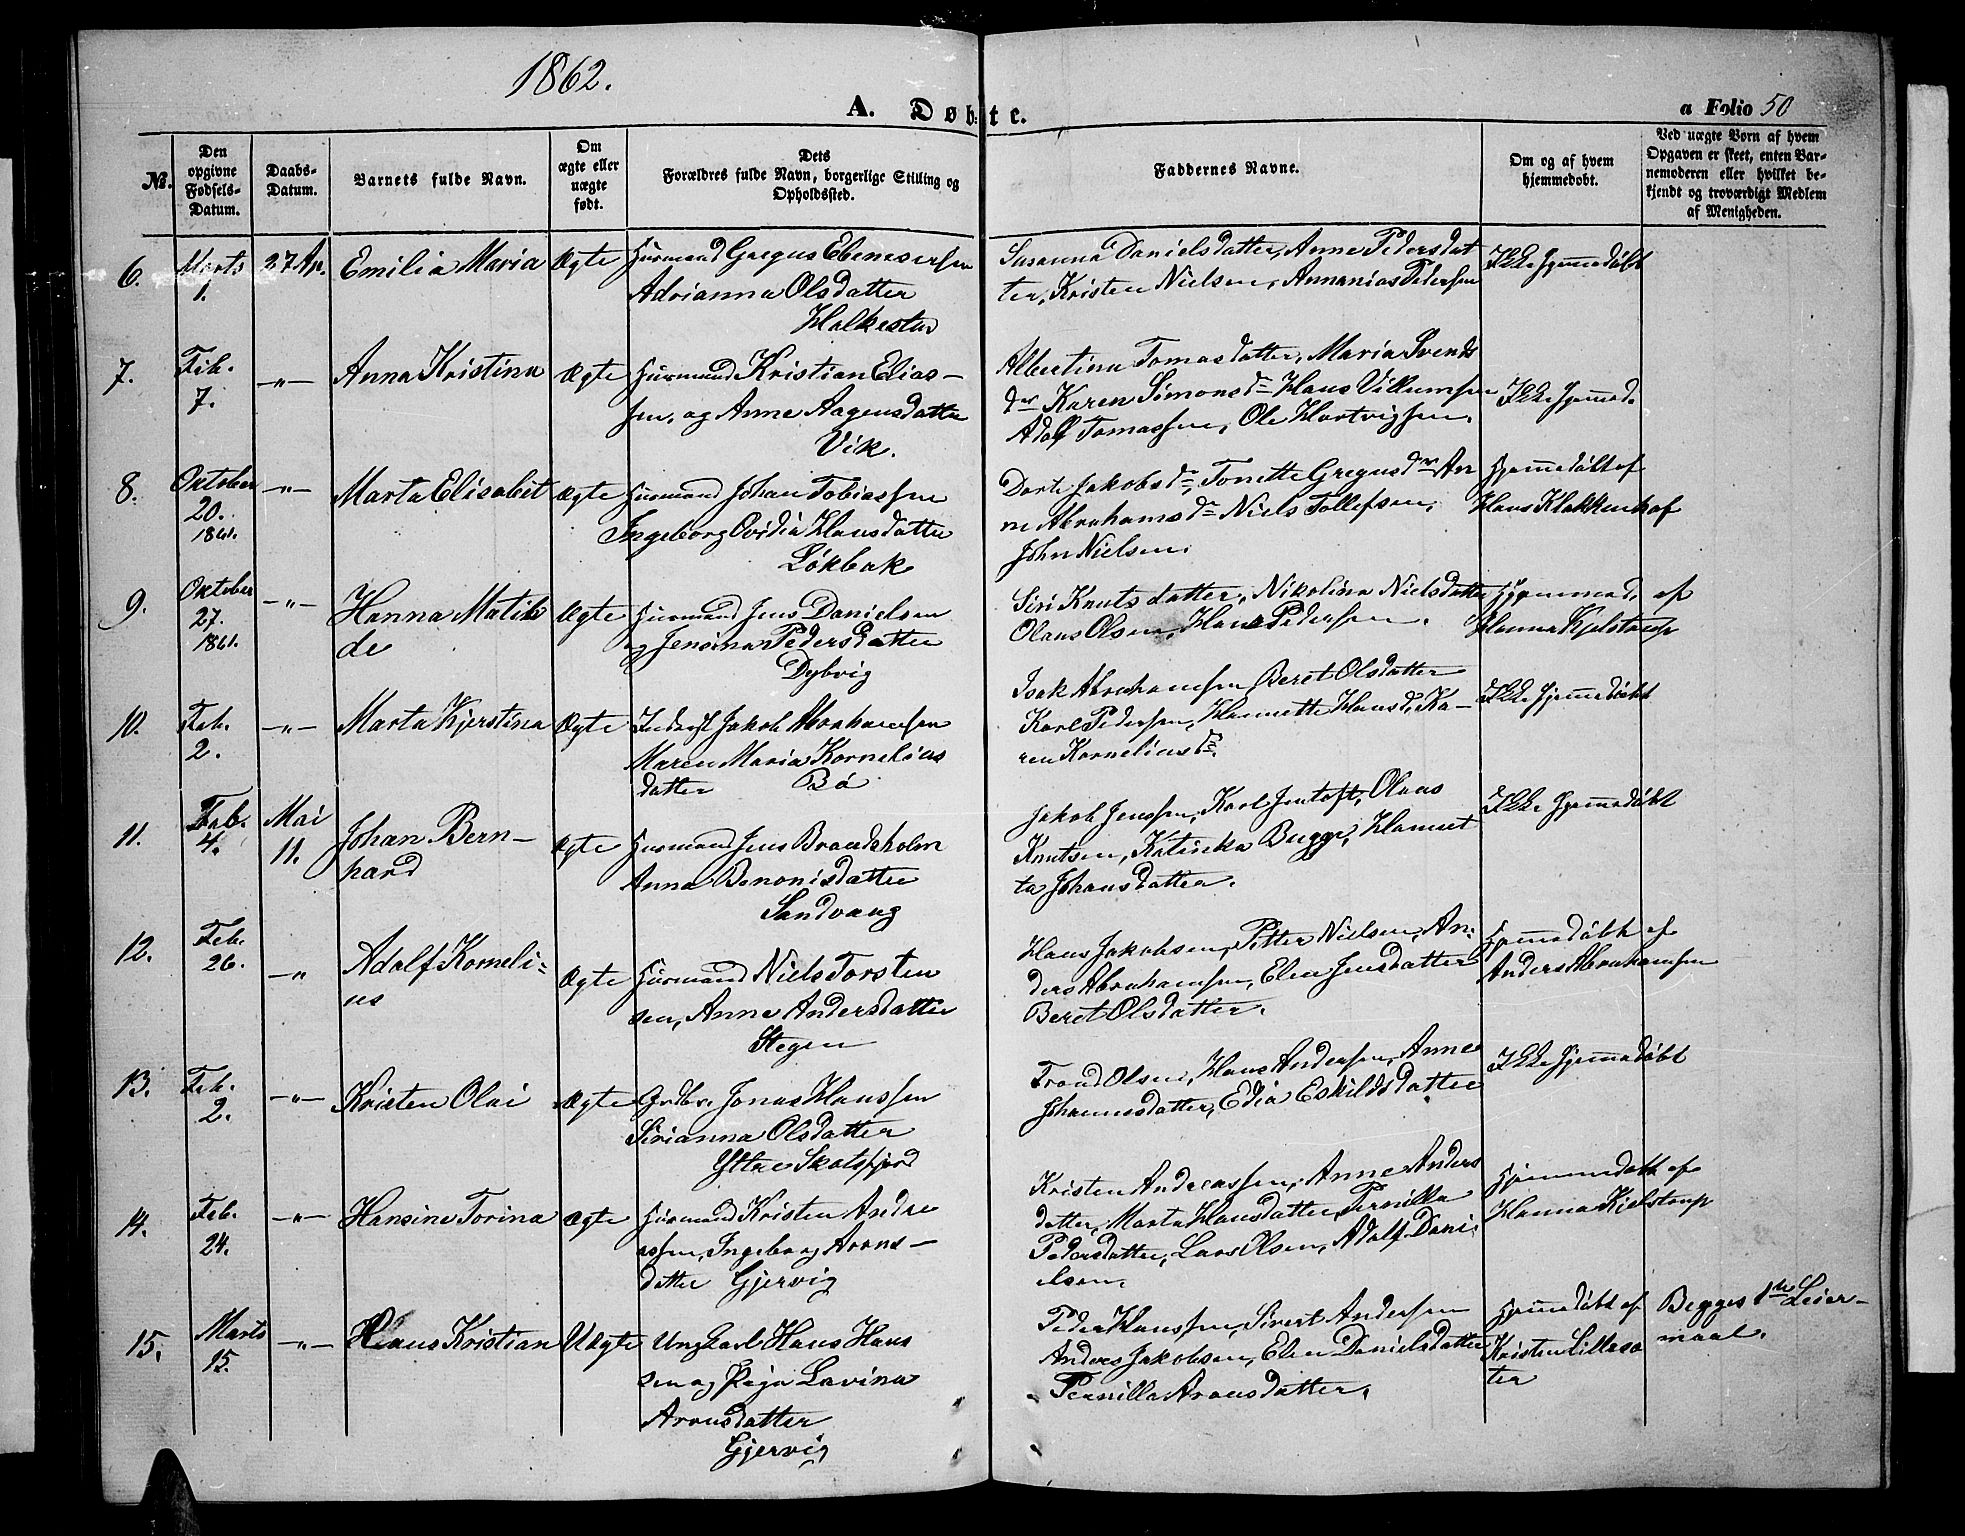 1862.
A. Døbte.
a Folio 50
№.
Den opgivne Fødsels-Datum.
Daabs-Datum.
Barnets fulde Navn.
Om ægte eller uægte født.
Dets Forældres fulde Navn, borgerlige Stilling og Opholdssted.
Faddernes Navne.
Om og af hvem hjemmedøbt.
Ved uægte Born af hvem Opgaven er skeet, enten Barnemoderen eller hvilket bekjendt og troværdigt Medlem af Menigheden.
6. Marts 27 Ap. Emilia Maria Ægte Huusmand Gregus Ebenesersen
1. Adrianna Olsdatter
Susanna Danielsdatter, Anne Pedersdat
ter, Kristen Nielsen, Annanias Pedersen
Ikke hjemmedøbt
7. Feb. —"— Anna Kristina Ægte Huusmand Kristian Elias—
7. sen, og Anne Aagensdatter
Vik.
Albertina Tomasdatter, Maria Svends
dr Karen Simonsdr Hans Villumsen
Adolf Tomassen, Ole Hartvigsen.
Ikke hjemmed.
8. Oktober —"— Marta Elisabet Ægte Huusmand Johan Tobiassen
20. Ingeborg Ovidia Hansdatter
1861. Løkbak
Dorte Jakobsdr, Tonette Gregusdr An
ne Abrahamsdr Niels Tollefsen,
John Nielsen.
Hjemmedøbt af
Hans Klakkenhaf
9. Oktober —"— Hanna Matil Ægte Huusmand Jens Danielsen
27. de og Jensina Pedersdatter
1861. Dybvig
Siri Knutsdatter, Nikolina Nielsdatter
Olaus Olsen, Hans Pedersen.
Hjemmed. af
Hanna Kjelstrup
10. Feb. —"— Marta Kjerstina Ægte Inderst Jakob Abrahamsen
2. Maren Maria Kornelius
datter Bø
Isak Abrahamsen, Beret Olsdatter
Karl Pedersen, Hannette Hansd, Ka—
ren Korneliusdr.
Ikke hjemmedøbt
11. Feb. Mai Johan Bern— Ægte Huusmand Jens Brandsholm
4. 11. hard Anna Benonisdatter
Sandvang
Jakob Jenssen, Karl Jentoft, Olaus
Knutsen, Katinka Bugge, Hannet
ta Johansdatter.
Ikke hjemmedøbt
12. Feb. —" Adolf Korneli= Ægte Huusmand Niels Torsten
26. us sen, Anne Andersdatter
Stegen
Hans Jakobsen, Petter Nielsen, An=
ders Abrahamsen, Elen Jensdatter
Beret Olsdatter.
Hjemmedøbt af
Anders Abrahamsen
13. Feb. —"— Kristen Olai Ægte Grdbr. Jonas Hanssen
2. Sirianna Olsdatter
Yttre Skotsfjord
Trond Olsen, Hans Andersen, Anne
Johannesdatter, Edia Eskildsdatter
Ikke hjemmedøbt
14. Feb. —"— Hansine Torina Ægte Huusmand Kristen Andre
24. assen, Ingeborg Arons—
datter Gjervig
Kristen Andreassen, Anne Anders
datter, Marta Hansdatter, Pernilla
Pedersdatter, Lars Olsen, Adolf Dani
elsen.
Hjemmedøbt af
Hanna Kjelstrup
15. Marts —"— Klaus Kristian Uægte Ungkarl Hans Hans
15. sen og Pige Lavina
Aronsdatter
Gjervig
Peder Hanssen, Sivert Andersen
Anders Jakobsen, Elen Danielsdatter
Pernilla Aronsdatter.
Hjemmedøbt af
Kristen Lillesæ
ter
Begges 1ste Leier—
maal.